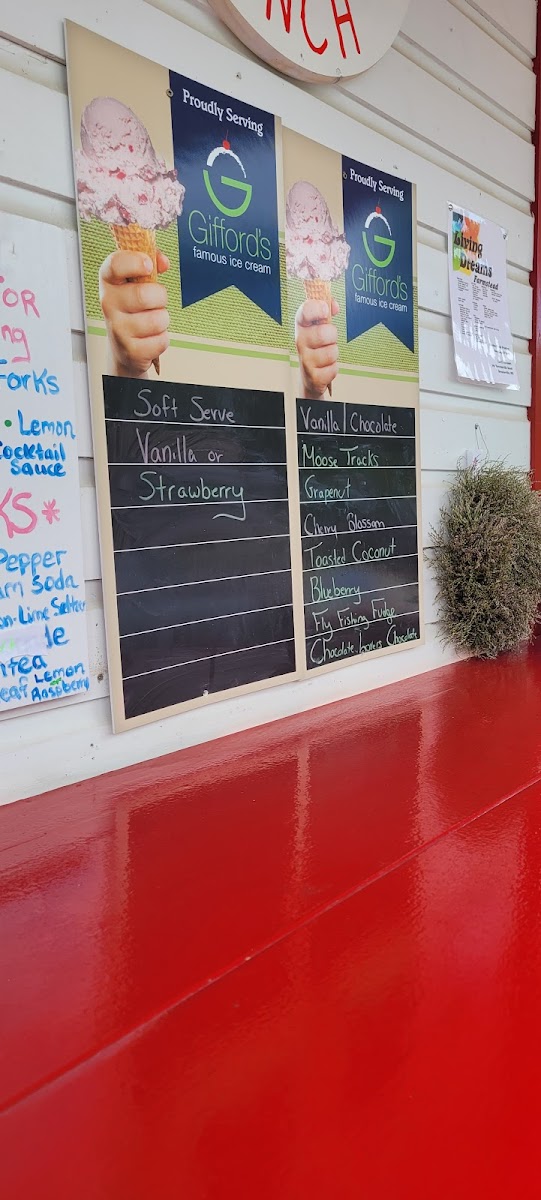 NCH
Proudly Serving
G
Gifford's
famous ice cream
Soft Serve
Vanilla or
Strawberry
Proudly Serving
G
Gifford's
famous ice cream
Vanilla / Chocolate
Moose Tracks
Grapenut
Cherry Blossom
Toasted Coconut
Blueberry
Fly Fishing Fudge
Chocolate lovers Chocolate
Living
Dreams
Farmstead
For
ng
Forks
• Lemon
Cocktail
Sauce
KS*
Pepper
Soda
Lime Seltzer
le
tea
eaf Lemon
Raspberry